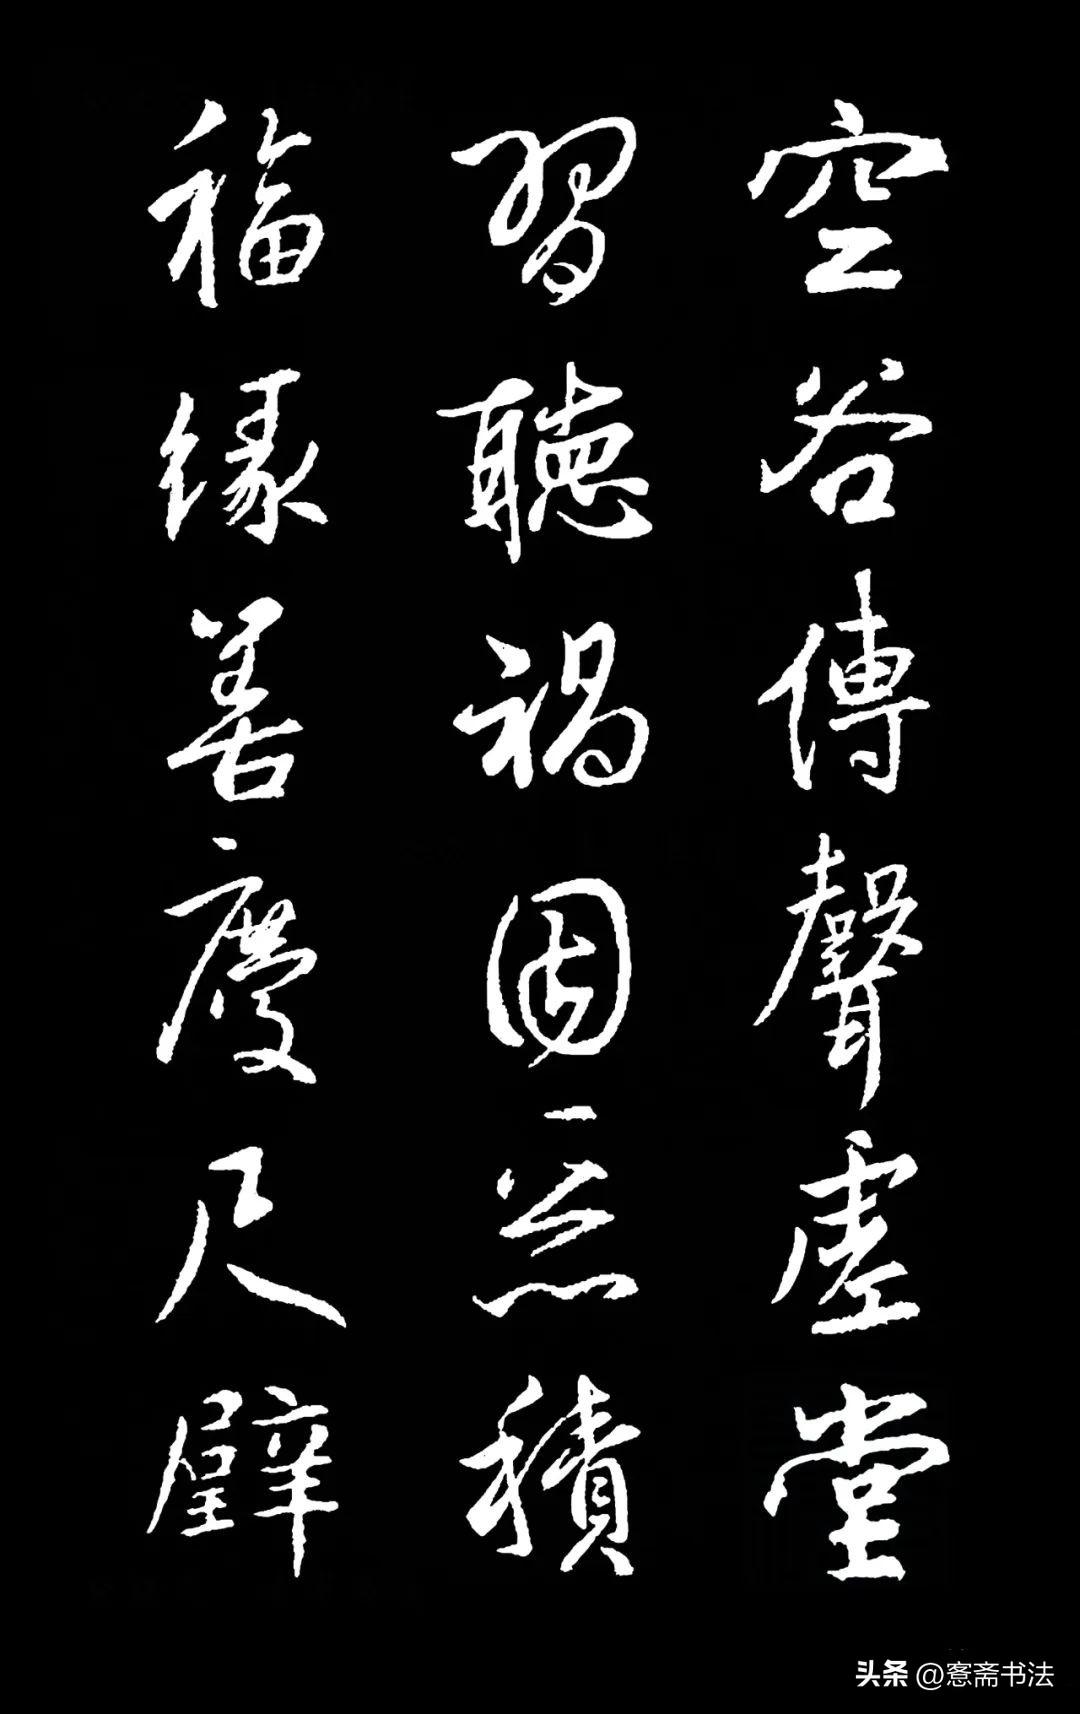 空谷傳聲虛堂
習聽禍因惡積
福緣善慶尺璧
头条 @窓斋书法